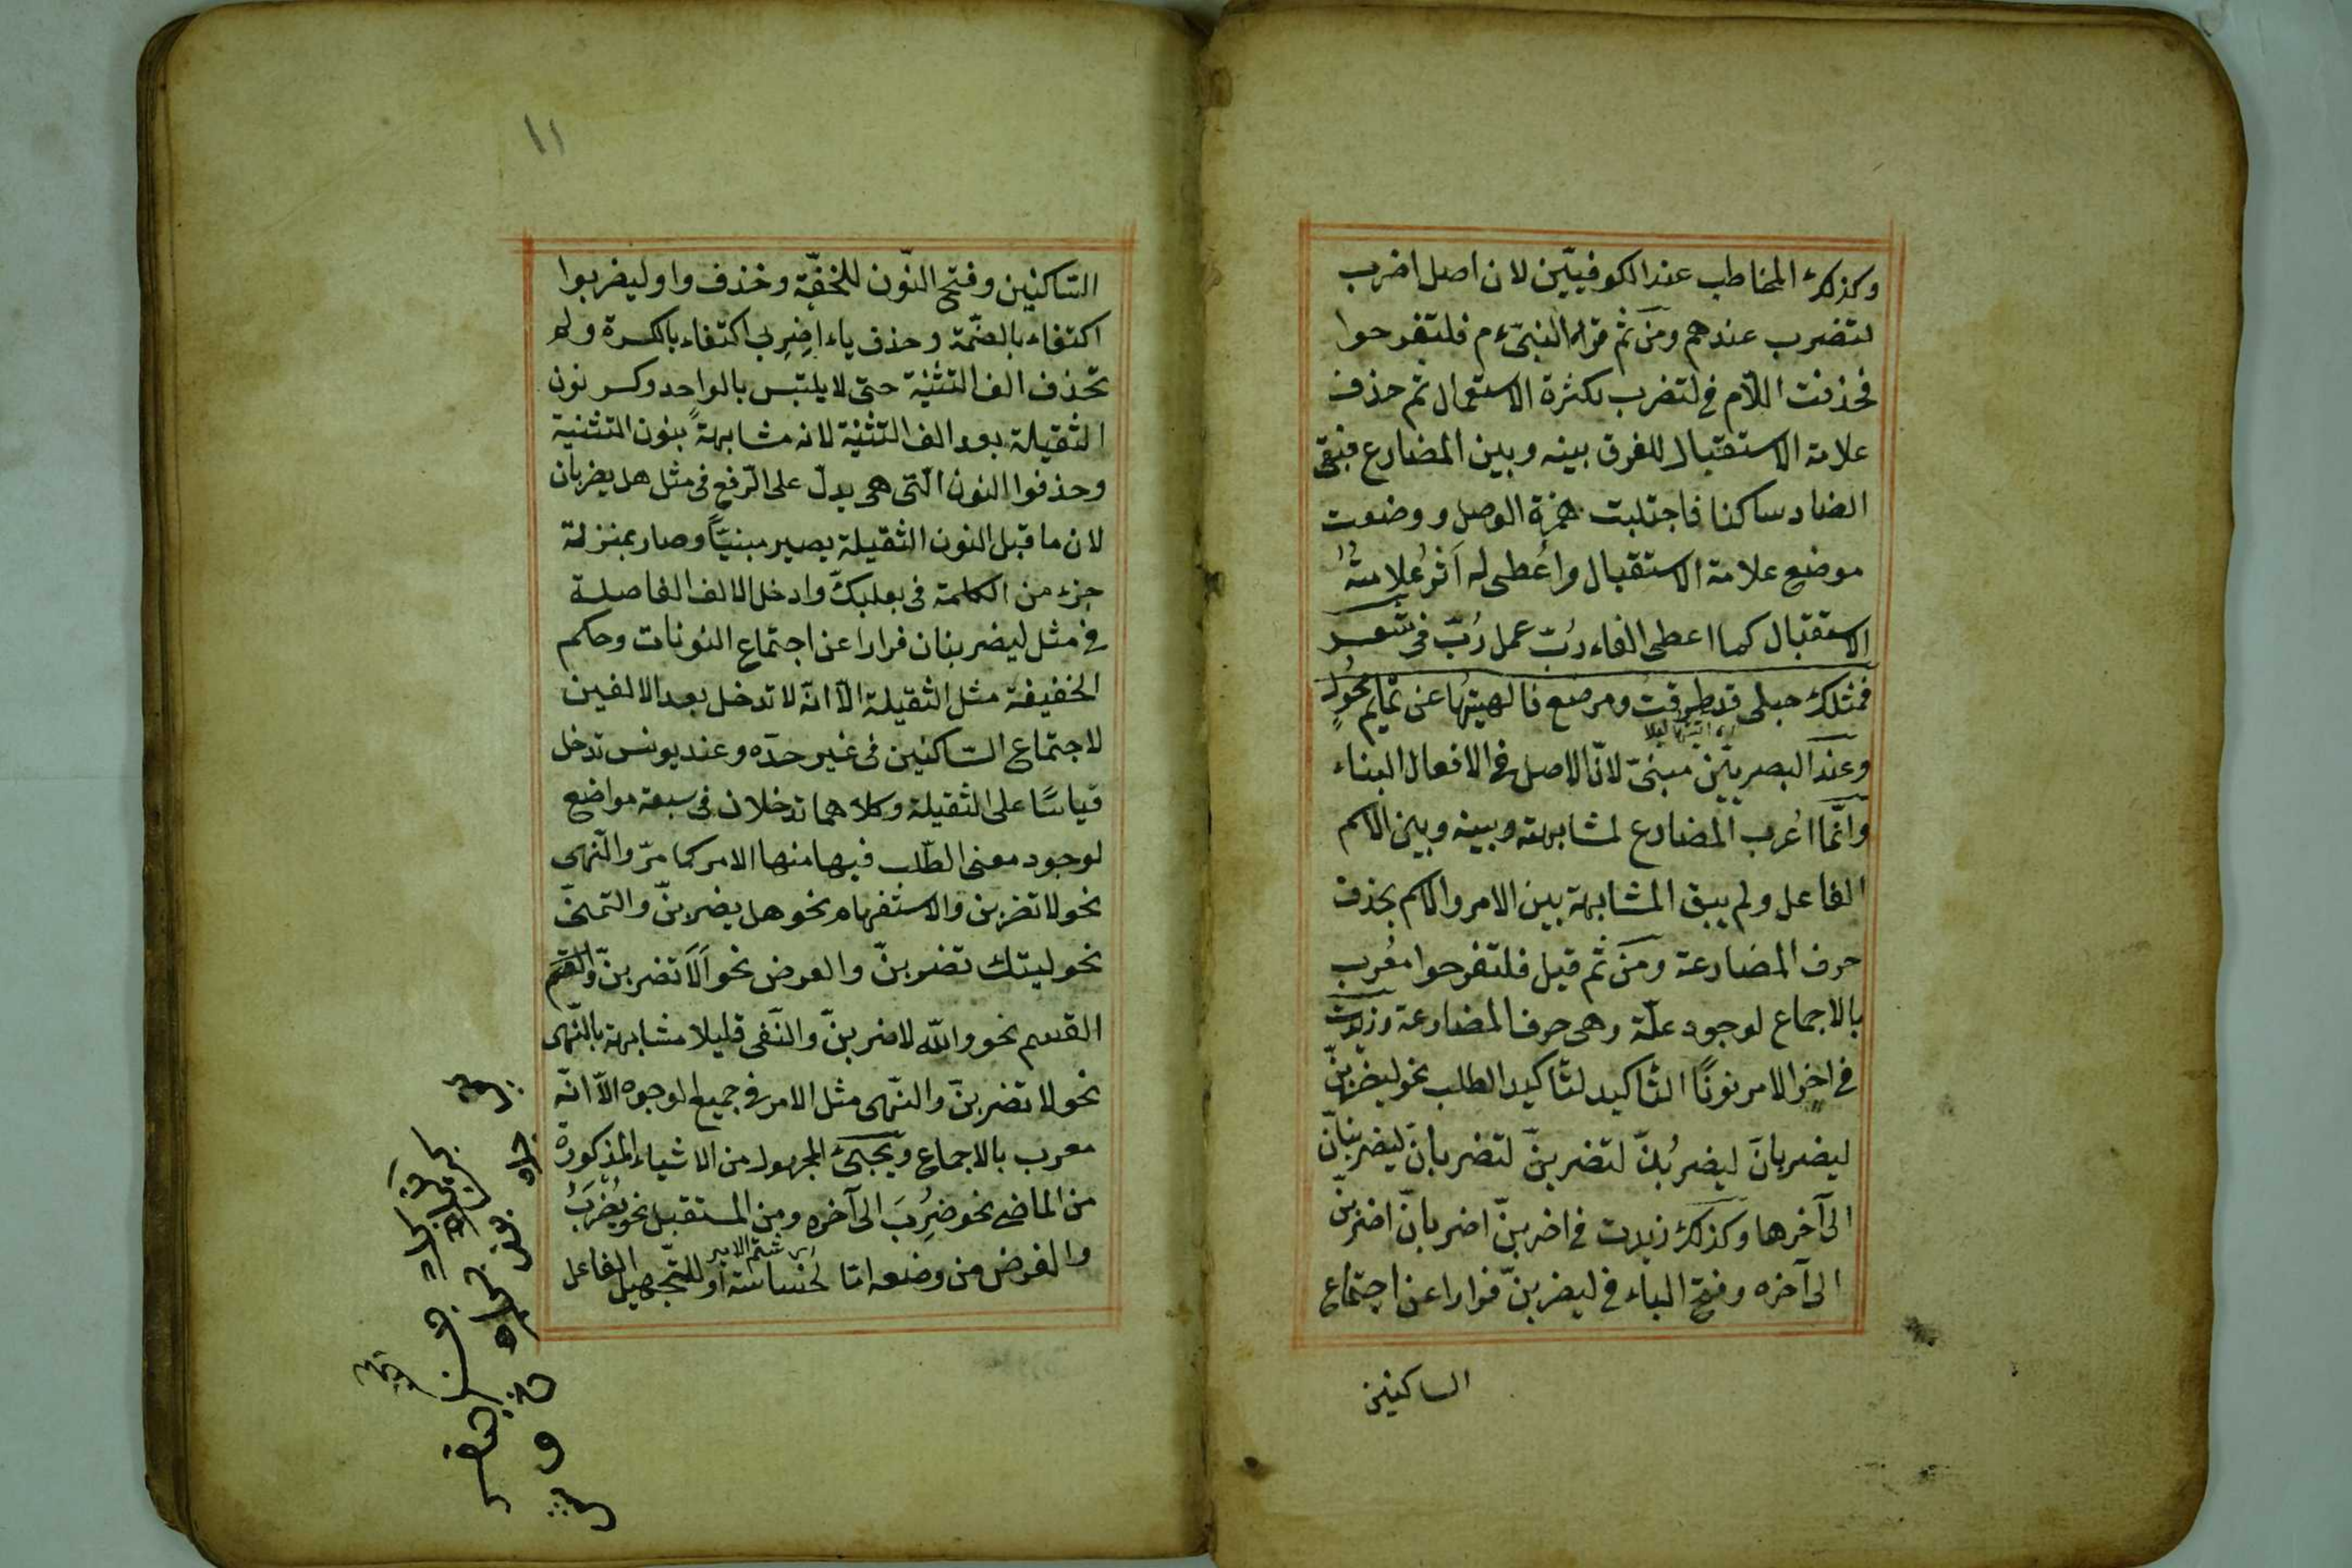 وكذلك المخاطب عند الكوفيّين لان اصل اضرب
لتضرب عندهم ومن ثم قراء النبىّ م فلتفرحوا
فحذفت اللّام فى لتضرب لكثرة الاستعمال ثم حذف
علامة الاستقبال للفرق بينه وبين المضارع فبقى
الضاد ساكنا فاجتلبت همزة الوصل ووضعت
موضع علامة الاستقبال واُعطى له اَثرُ علامتُه
الاستقبال كما اعطى الفاء رُبّ عمل رُبّ فى شعر
فمثلك حبلى قد طرقتُ ومرضع فالهيتها عن تمايم مُحْوِلِ
وعند البصريّين مبنىّ لانّ الاصل فى الافعال البناء
وانّما اُعرب المضارع لمشابهة وبينه وبين الاسم
الفاعل ولم يبق المشابهة بين الامر والاسم بحذف
حرف المضارعة ومن ثم قيل فلتفرحوا معُرب
بالاجماع لوجود علّة وهى حرف المضارعة وزيدت
فى اخر الامر نونًا التاكيد لتاكيد الطلب نحو ليضربنّ
ليضربانّ ليضربُنّ لتضربنّ لتضربانّ ليضربنانّ
الى آخرها وكذلك زيدت فى اضربنّ اضربانّ اضربنّ
الى آخره وفتح الباء فى ليضربنّ فرارا عن اجتماع
الساكنين
١١
الساكنين وفتح النّون للخفّة وحذف واو ليضربوا
اكتفاء بالضمّة وحذف ياء اضِرِبى اكتفاء بالكسرة ولم
تحذف الف التثنية حتى لا يلتبس بالواحد وكسر نون
الثقيلة بعد الف التثنية لانه مشابهةً بنون التثنية
وحذفوا النون الّتى هى يدلّ على الرّفع فى مثل هل يضربان
لان ما قبل النون الثقيلة يصير مبنيّاً وصار بمنزلة
جزء من الكلمة فى بعلبكّ وادخل الالف الفاصلة
فى مثل ليضربنان فرارا عن اجتماع النونات وحكم
الخفيفة مثل الثقيلة الّا انّه لا تدخل بعد الالفين
لاجتماع السّاكنين فى غير حدّه وعند يونس تدخل
قياسًا على الثقيلة وكلاهما تدخلان فى سبعة مواضع
لوجود معنى الطّلب فيها منها الامر كما مرّ والنّهى
نحو لا تضربن والاستفهام نحو هل يضربنّ والتمنّى
نحو ليتك تضربنّ والعرض نحو اَلَا تضربنّ والقسم
القسم نحو واللّه لاضربنّ والنّفى قليلا مشابهة بالنّهى
نحو لا تضربنّ والنّهى مثل الامر فى جميع الوجوه الّا انّه
معرب بالاجماع ويجىء المجهول من الاشياء المذكورة
من الماضى نحو ضُرِبَ الى آخره ومن المستقبل نحو يُضْرَبُ
والغرض من وضعه امّا لخساسته او للتّجهيل الفاعل